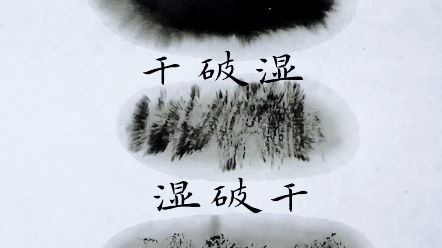 干破湿
湿破干